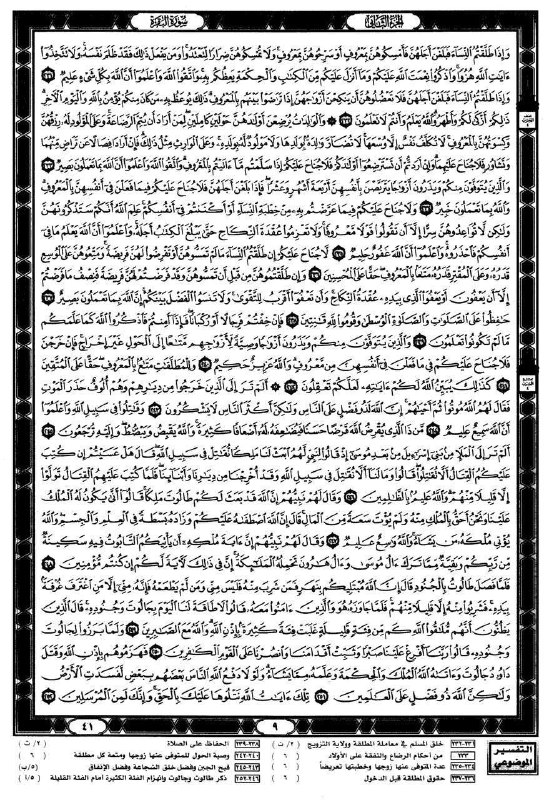 الجزء الثاني
سورة البقرة
وإذا طلقتم النساء فبلغن أجلهن فأمسكوهن بمعروف أو سرحوهن بمعروف ولا تمسكوهن ضرارا لتعتدوا ومن يفعل ذلك فقد ظلم نفسه ولا تتخذوا
ءايت الله هزوا واذكروا نعمت الله عليكم وما أنزل عليكم من الكتب والحكمة يعظكم به واتقوا الله واعلموا أن الله بكل شيء عليم ٢٣١
وإذا طلقتم النساء فبلغن أجلهن فلا تعضلوهن أن ينكحن أزوجهن إذا ترضوا بينهم بالمعروف ذلك يوعظ به من كان منكم يؤمن بالله واليوم الآخر
ذلكم أزكى لكم وأطهر والله يعلم وأنتم لا تعلمون ٢٣٢ والولدت يرضعن أولدهن حولين كاملين لمن أراد أن يتم الرضاعة وعلى المولود له رزقهن
وكسوتهن بالمعروف لا تكلف نفس إلا وسعها لا تضار ولدة بولدها ولا مولود له بولده وعلى الوارث مثل ذلك فإن أرادا فصالا عن تراض منهما
وتشاور فلا جناح عليهما وإن أردتم أن تسترضعوا أولدكم فلا جناح عليكم إذا سلمتم ما ءاتيتم بالمعروف واتقوا الله واعلموا أن الله بما تعملون بصير ٢٣٣
والذين يتوفون منكم ويذرون أزوجا يتربصن بأنفسهن أربعة أشهر وعشرا فإذا بلغن أجلهن فلا جناح عليكم فيما فعلن في أنفسهن بالمعروف
والله بما تعملون خبير ٢٣٤ ولا جناح عليكم فيما عرضتم به من خطبة النساء أو أكننتم في أنفسكم علم الله أنكم ستذكرونهن
ولكن لا تواعدوهن سرا إلا أن تقولوا قولا معروفا ولا تعزموا عقدة النكاح حتى يبلغ الكتب أجله واعلموا أن الله يعلم ما في
أنفسكم فاحذروه واعلموا أن الله غفور حليم ٢٣٥ لا جناح عليكم إن طلقتم النساء ما لم تمسوهن أو تفرضوا لهن فريضة ومتعوهن على الموسع
قدره وعلى المقتر قدره متعا بالمعروف حقا على المحسنين ٢٣٦ وإن طلقتموهن من قبل أن تمسوهن وقد فرضتم لهن فريضة فنصف ما فرضتم
إلا أن يعفون أو يعفوا الذي بيده عقدة النكاح وأن تعفوا أقرب للتقوى ولا تنسوا الفضل بينكم إن الله بما تعملون بصير ٢٣٧
حفظوا على الصلوت والصلوة الوسطى وقوموا لله قنتين ٢٣٨ فإن خفتم فرجالا أو ركبانا فإذا أمنتم فاذكروا الله كما علمكم
ما لم تكونوا تعلمون ٢٣٩ والذين يتوفون منكم ويذرون أزوجا وصية لأزوجهم متعا إلى الحول غير إخراج فإن خرجن
فلا جناح عليكم في ما فعلن في أنفسهن من معروف والله عزيز حكيم ٢٤٠ وللمطلقت متع بالمعروف حقا على المتقين
٢٤١ كذلك يبين الله لكم ءايته لعلكم تعقلون ٢٤٢ ألم تر إلى الذين خرجوا من ديرهم وهم ألوف حذر الموت
فقال لهم الله موتوا ثم أحيهم إن الله لذو فضل على الناس ولكن أكثر الناس لا يشكرون ٢٤٣ وقتلوا في سبيل الله واعلموا
أن الله سميع عليم ٢٤٤ من ذا الذي يقرض الله قرضا حسنا فيضعفه له أضعافا كثيرة والله يقبض ويبصط وإليه ترجعون ٢٤٥
ألم تر إلى الملإ من بني إسرءيل من بعد موسى إذ قالوا لنبي لهم ابعث لنا ملكا نقتل في سبيل الله قال هل عسيتم إن كتب
عليكم القتال ألا تقتلوا قالوا وما لنا ألا نقتل في سبيل الله وقد أخرجنا من ديرنا وأبنائنا فلما كتب عليهم القتال تولوا
إلا قليلا منهم والله عليم بالظلمين ٢٤٦ وقال لهم نبيهم إن الله قد بعث لكم طالوت ملكا قالوا أنى يكون له الملك
علينا ونحن أحق بالملك منه ولم يؤت سعة من المال قال إن الله اصطفه عليكم وزاده بسطة في العلم والجسم والله
يؤتي ملكه من يشاء والله وسع عليم ٢٤٧ وقال لهم نبيهم إن ءاية ملكه أن يأتيكم التابوت فيه سكينة
من ربكم وبقية مما ترك ءال موسى وءال هرون تحمله الملئكة إن في ذلك لآية لكم إن كنتم مؤمنين ٢٤٨
فلما فصل طالوت بالجنود قال إن الله مبتليكم بنهر فمن شرب منه فليس مني ومن لم يطعمه فإنه مني إلا من اغترف غرفة
بيده فشربوا منه إلا قليلا منهم فلما جاوزه هو والذين ءامنوا معه قالوا لا طاقة لنا اليوم بجالوت وجنوده قال الذين
يظنون أنهم ملقوا الله كم من فئة قليلة غلبت فئة كثيرة بإذن الله والله مع الصبرين ٢٤٩ ولما برزوا لجالوت
وجنوده قالوا ربنا أفرغ علينا صبرا وثبت أقدامنا وانصرنا على القوم الكفرين ٢٥٠ فهزموهم بإذن الله وقتل
داود جالوت وءاتىه الله الملك والحكمة وعلمه مما يشاء ولولا دفع الله الناس بعضهم ببعض لفسدت الأرض
ولكن الله ذو فضل على العلمين ٢٥١ تلك ءايت الله نتلوها عليك بالحق وإنك لمن المرسلين ٢٥٢
٩
٤١
التفسير الموضوعي
٢٣١-٢٣٢ خلق المسلم في معاملة المطلقة وولاية الترويج (٢/ت)
٢٣٣ من أحكام الرضاع والنفقة على الأولاد (٦)
٢٣٤-٢٣٥ عدة المتوفى عنها زوجها وخطبتها تعريضاً (٦)
٢٣٦-٢٣٧ حقوق المطلقة قبل الدخول (٦)
٢٣٨-٢٣٩ الحفاظ على الصلاة (٢/ت)
٢٤٠-٢٤٢ وصية الحول للمتوفى عنها زوجها ومتعة كل مطلقة (٦)
٢٤٣-٢٤٥ قبح الجبن وفضل خلق الشجاعة وفضل الإنفاق (٥/ب)
٢٤٦-٢٥٢ ذكر طالوت وجالوت وانهزام الفئة الكثيرة أمام الفئة القليلة (٥/أ)